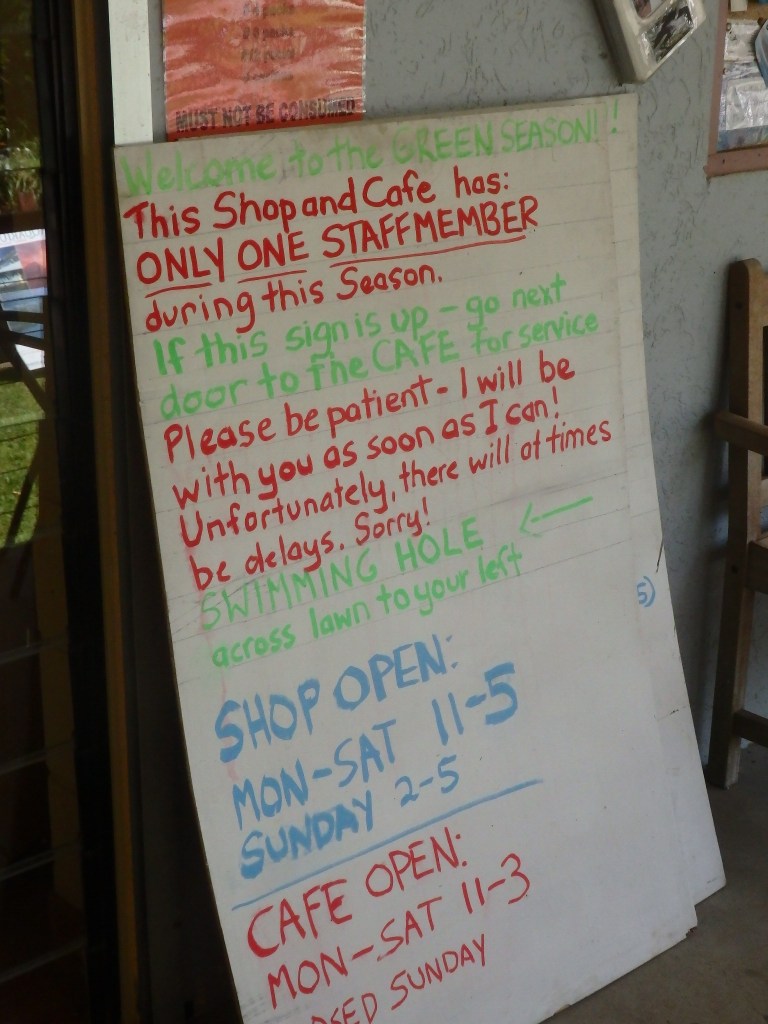 MUST NOT BE CONSUMED
Welcome to the GREEN SEASON!!
This Shop and Cafe has:
ONLY ONE STAFF MEMBER
during this Season.
If this sign is up - go next
door to the CAFE for service
Please be patient - I will be
with you as soon as I can!
Unfortunately, there will at times
be delays. Sorry!
SWIMMING HOLE ←
across lawn to your left
5)
SHOP OPEN:
MON-SAT 11-5
SUNDAY 2-5
CAFE OPEN:
MON-SAT 11-3
SUNDAY